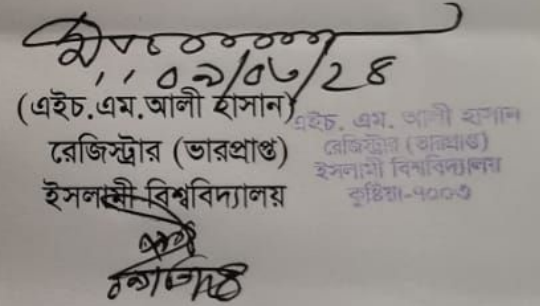 ০৯/০৬/২৪
(এইচ.এম.আলী হাসান)
রেজিস্ট্রার (ভারপ্রাপ্ত)
ইসলামী বিশ্ববিদ্যালয়
এইচ. এম. আলী হাসান
রেজিস্ট্রার (ভারপ্রাপ্ত)
ইসলামী বিশ্ববিদ্যালয়
কুষ্টিয়া-৭০০৩